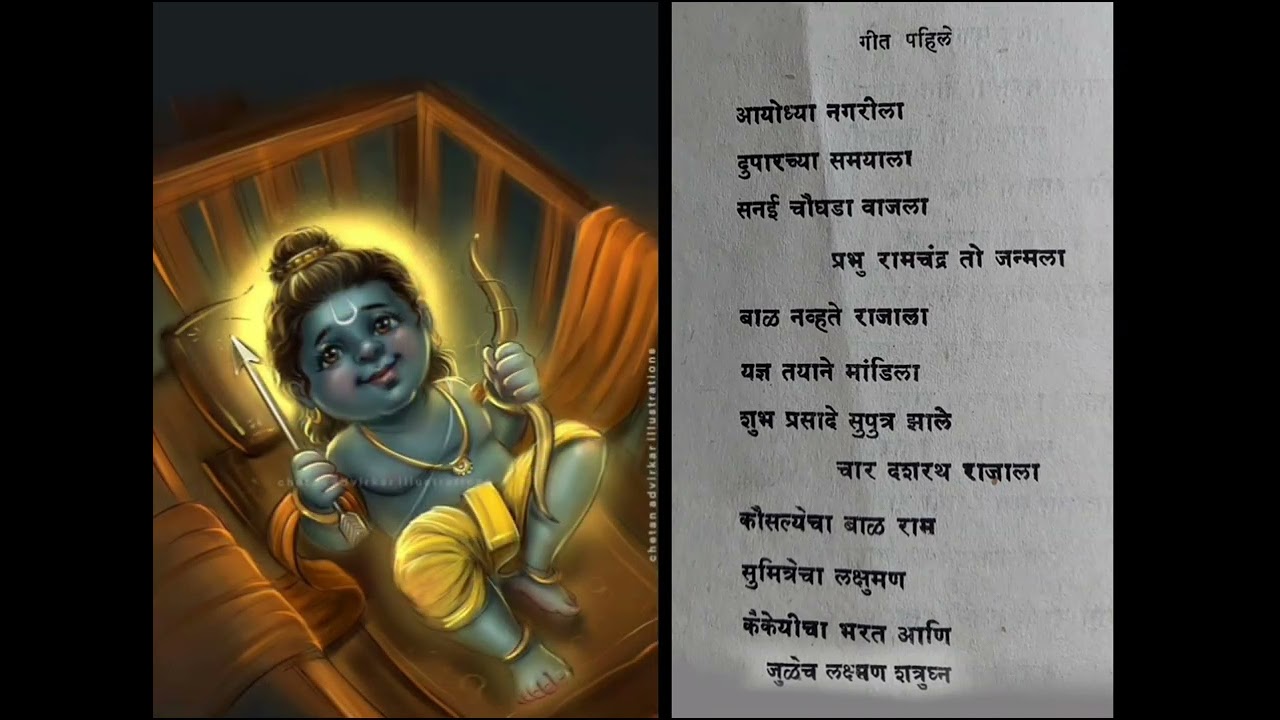 chetan advirkar illustrations
chetan advirkar illustrations
गीत पहिले
आयोध्या नगरीला
दुपारच्या समयाला
सनई चौघडा वाजला
प्रभु रामचंद्र तो जन्मला
बाळ नव्हते राजाला
यज्ञ तयाने मांडिला
शुभ प्रसादे सुपुत्र झाले
चार दशरथ राजाला
कौसल्येचा बाळ राम
सुमित्रेचा लक्षुमण
कैकेयीचा भरत आणि
जुळेच लक्ष्मण शत्रुघ्न